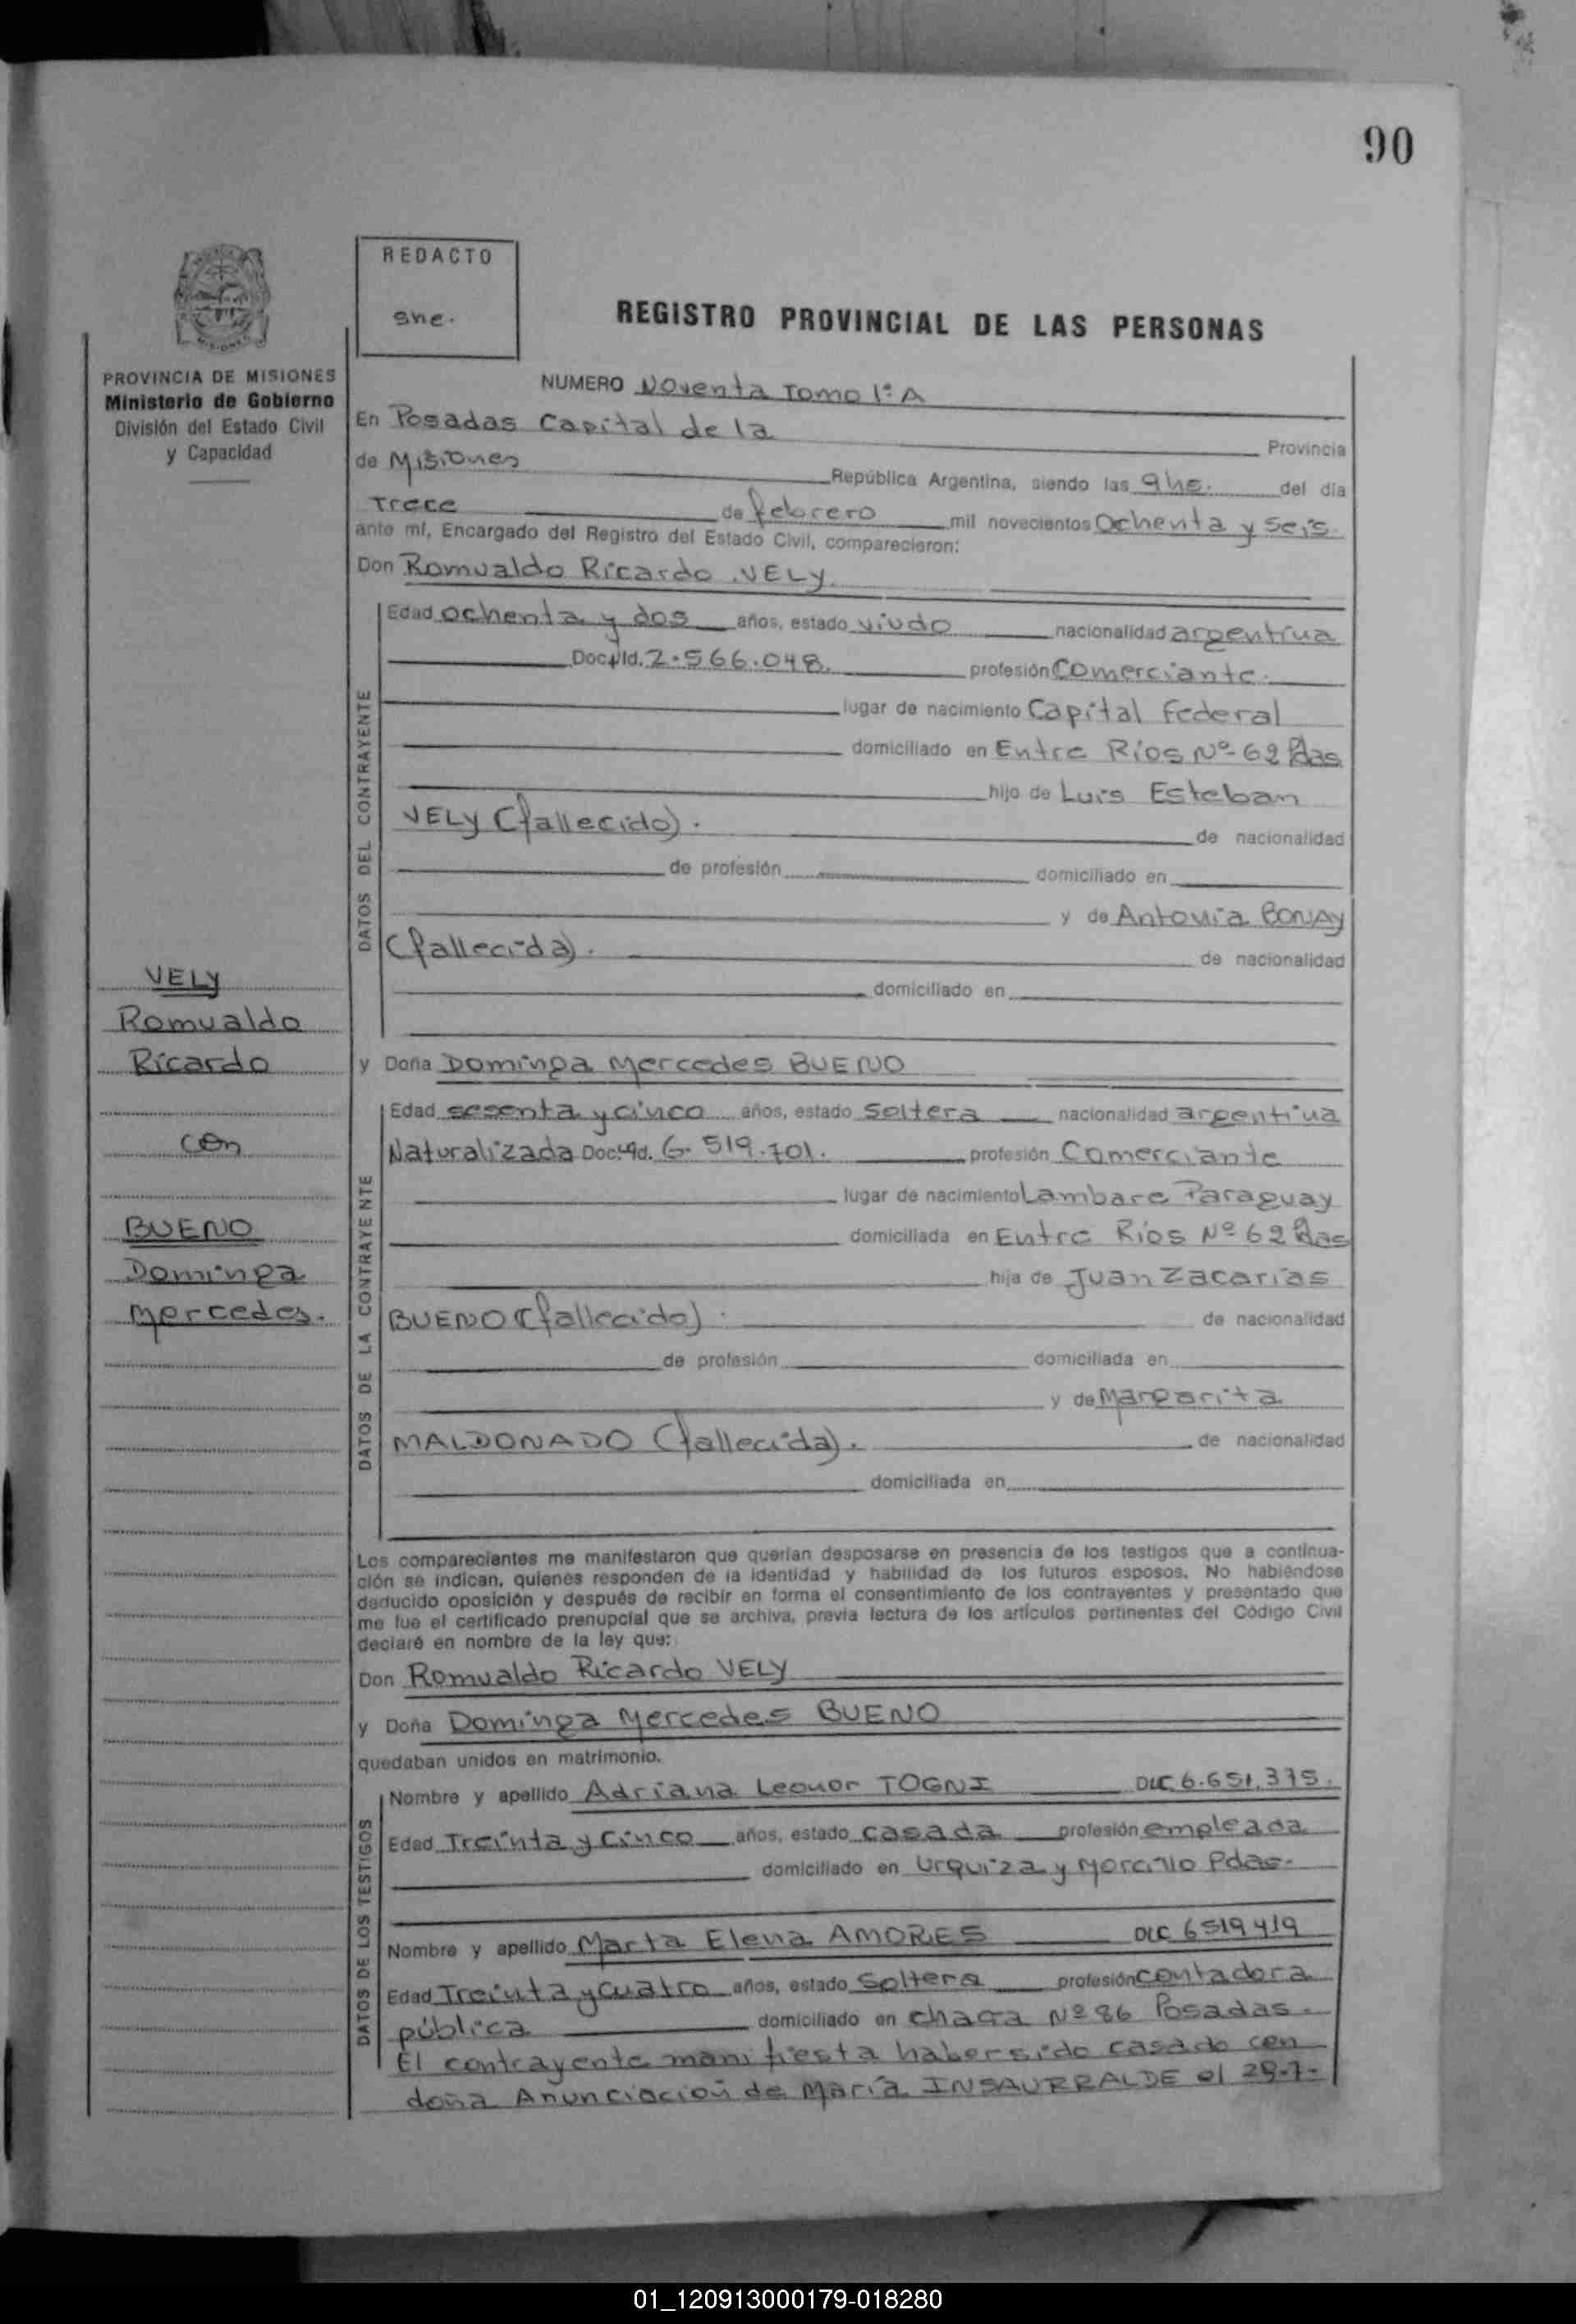 90
REDACTO
gne.
REGISTRO PROVINCIAL DE LAS PERSONAS
PROVINCIA DE MISIONES
Ministerio de Gobierno
División del Estado Civil
y Capacidad
NUMERO Noventa Tomo 1º A
En Posadas Capital de la Provincia
de Misiones República Argentina, siendo las 9hs. del día
Trece de febrero mil novecientos Ochenta y Seis
ante mí, Encargado del Registro del Estado Civil, comparecieron:
Don Romualdo Ricardo VELY
DATOS DEL CONTRAYENTE
Edad ochenta y dos años, estado viudo nacionalidad argentina
Doc. Id. 2.566.048. profesión Comerciante.
lugar de nacimiento Capital Federal
domiciliado en Entre Ríos Nº 62 Pdas
hijo de Luis Esteban
VELY (fallecido). de nacionalidad
de profesión domiciliado en
y de Antonia BONAY
(fallecida). de nacionalidad
domiciliado en
VELY
Romualdo
Ricardo
con
BUENO
Dominga
Mercedes.
y Doña Dominga Mercedes BUENO
DATOS DE LA CONTRAYENTE
Edad sesenta y cinco años, estado Soltera nacionalidad argentina
Naturalizada Doc. Id. 6.519.701. profesión Comerciante
lugar de nacimiento Lambare Paraguay
domiciliada en Entre Ríos Nº 62 Pdas
hija de Juan Zacarías
BUENO (fallecido). de nacionalidad
de profesión domiciliada en
y de Margarita
MALDONADO (fallecida). de nacionalidad
domiciliada en
Los comparecientes me manifestaron que querían desposarse en presencia de los testigos que a continua-
ción se indican, quienes responden de la identidad y habilidad de los futuros esposos. No habiéndose
deducido oposición y después de recibir en forma el consentimiento de los contrayentes y presentado que
me fue el certificado prenupcial que se archiva, previa lectura de los artículos pertinentes del Código Civil
declaré en nombre de la ley que:
Don Romualdo Ricardo VELY
y Doña Dominga Mercedes BUENO
quedaban unidos en matrimonio.
DATOS DE LOS TESTIGOS
Nombre y apellido Adriana Leonor TOGNI DLC 6.651.375.
Edad Treinta y Cinco años, estado casada profesión empleada
domiciliado en Urquiza y Morcillo Pdas.
Nombre y apellido Marta Elena AMORES DLC 6519419
Edad Treinta y cuatro años, estado Soltera profesión contadora
pública domiciliado en chacra Nº 86 Posadas.
El contrayente manifiesta haber sido casado con
doña Anunciación de María INSAURRALDE el 28-7-
01_120913000179-018280